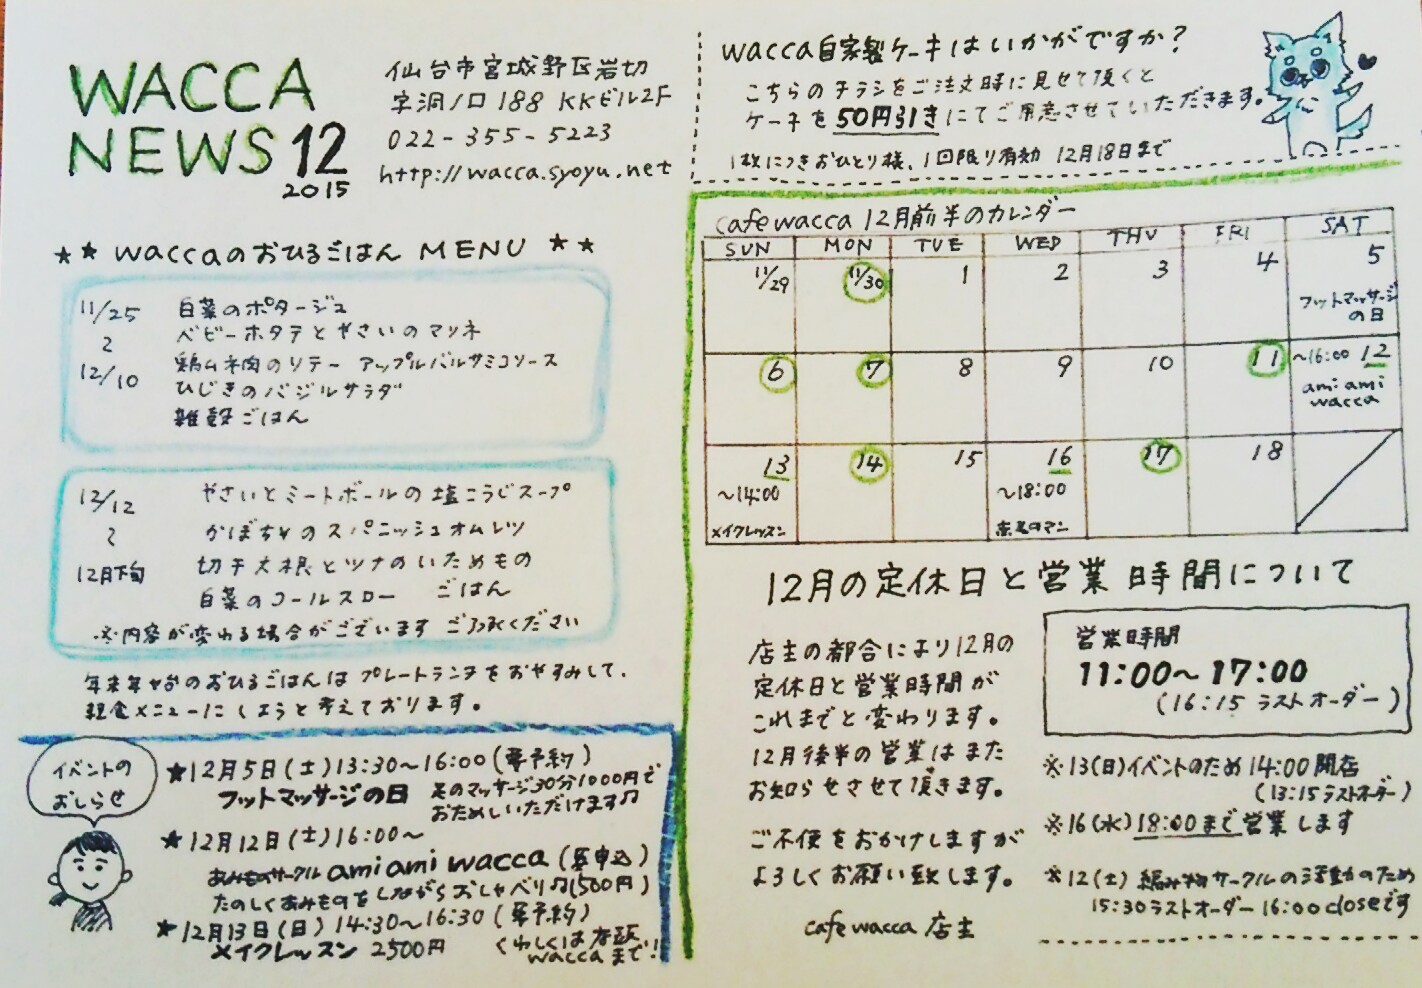 WACCA
NEWS 12
2015
仙台市宮城野区岩切
字洞ノ口 188 KKビル2F
022-355-5223
http://wacca.syoyu.net
wacca自家製ケーキはいかがですか?
こちらのチラシをご注文時に見せて頂くと
ケーキを50円引きにてご用意させていただきます。
1枚につきおひとり様、1回限り有効 12月18日まで
★★ waccaのおひるごはん MENU ★★
11/25
〜
12/10
白菜のポタージュ
ベビーホタテとやさいのマリネ
鶏ムネ肉のソテー アップルバルサミコソース
ひじきのバジルサラダ
雑穀ごはん
12/12
〜
12月下旬
やさいとミートボールの塩こうじスープ
かぼちゃのスパニッシュオムレツ
切干大根とツナのいためもの
白菜のコールスロー ごはん
※内容が変わる場合がございます ご了承ください
年末年始のおひるごはんは プレートランチをおやすみして、
軽食メニューにしようと考えております。
イベントの
おしらせ
★12月5日(土)13:30〜16:00(要予約)
フットマッサージの日 足のマッサージ30分1000円で
おためしいただけます♫
★12月12日(土)16:00〜
あみものサークル ami ami wacca (要申込)
たのしくあみものをしながらおしゃべり♫(500円)
★12月13日(日)14:30〜16:30(要予約)
メイクレッスン 2500円 くわしくは
waccaまで!
cafe wacca 12月前半のカレンダー
SUN MON TUE WED THU FRI SAT
11/29 11/30 1 2 3 4 5
フットマッサージ
の日
6 7 8 9 10 11 〜16:00 12
ami ami
wacca
13 14 15 16 17 18
〜14:00 〜18:00
メイクレッスン
12月の定休日と営業時間について
店主の都合により12月の
定休日と営業時間が
これまでと変わります。
12月後半の営業はまた
お知らせさせて頂きます。
ご不便をおかけしますが
よろしくお願い致します。
cafe wacca 店主
営業時間
11:00〜17:00
(16:15 ラストオーダー)
※13(日)イベントのため14:00閉店
(13:15ラストオーダー)
※16(水)18:00まで営業します
※12(土) 編み物サークルの活動のため
15:30ラストオーダー 16:00 closeです